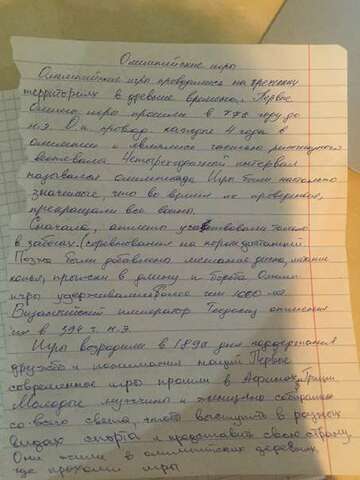 Олимпийские игры
Олимпийские игры проводились на греческих
территориях в древние времена. Первые
Олимп игры прошли в 776 году до
н.э. Они проводи каждые 4 года в
олимпии и являлись частью религиозного
фестиваля. 4-хгодичный интервал
назывался олимпиада Игры были настолько
значимые, что во время их проведения,
прекращали все войны.
Сначала, атлеты участвовали только
в забегах. (соревнования на
Позже были добавлены метание диска, метание
копья, прыжки в длину и борьба Олимп
игры удерживались более чем 1000 лет
Византийский император Теодосий отменил
их в 394 г. н.э.
Игры возродили в 189 для поддержания
дружбы и понимания наций Первые
современные игры прошли в Афинах, Греции.
Молодые мужчины и женщины собирались
со всего света, чтобы выступить в разных
видах спорта и представить свою страну.
Они жили в олимпийских деревнях,
где проходили игры